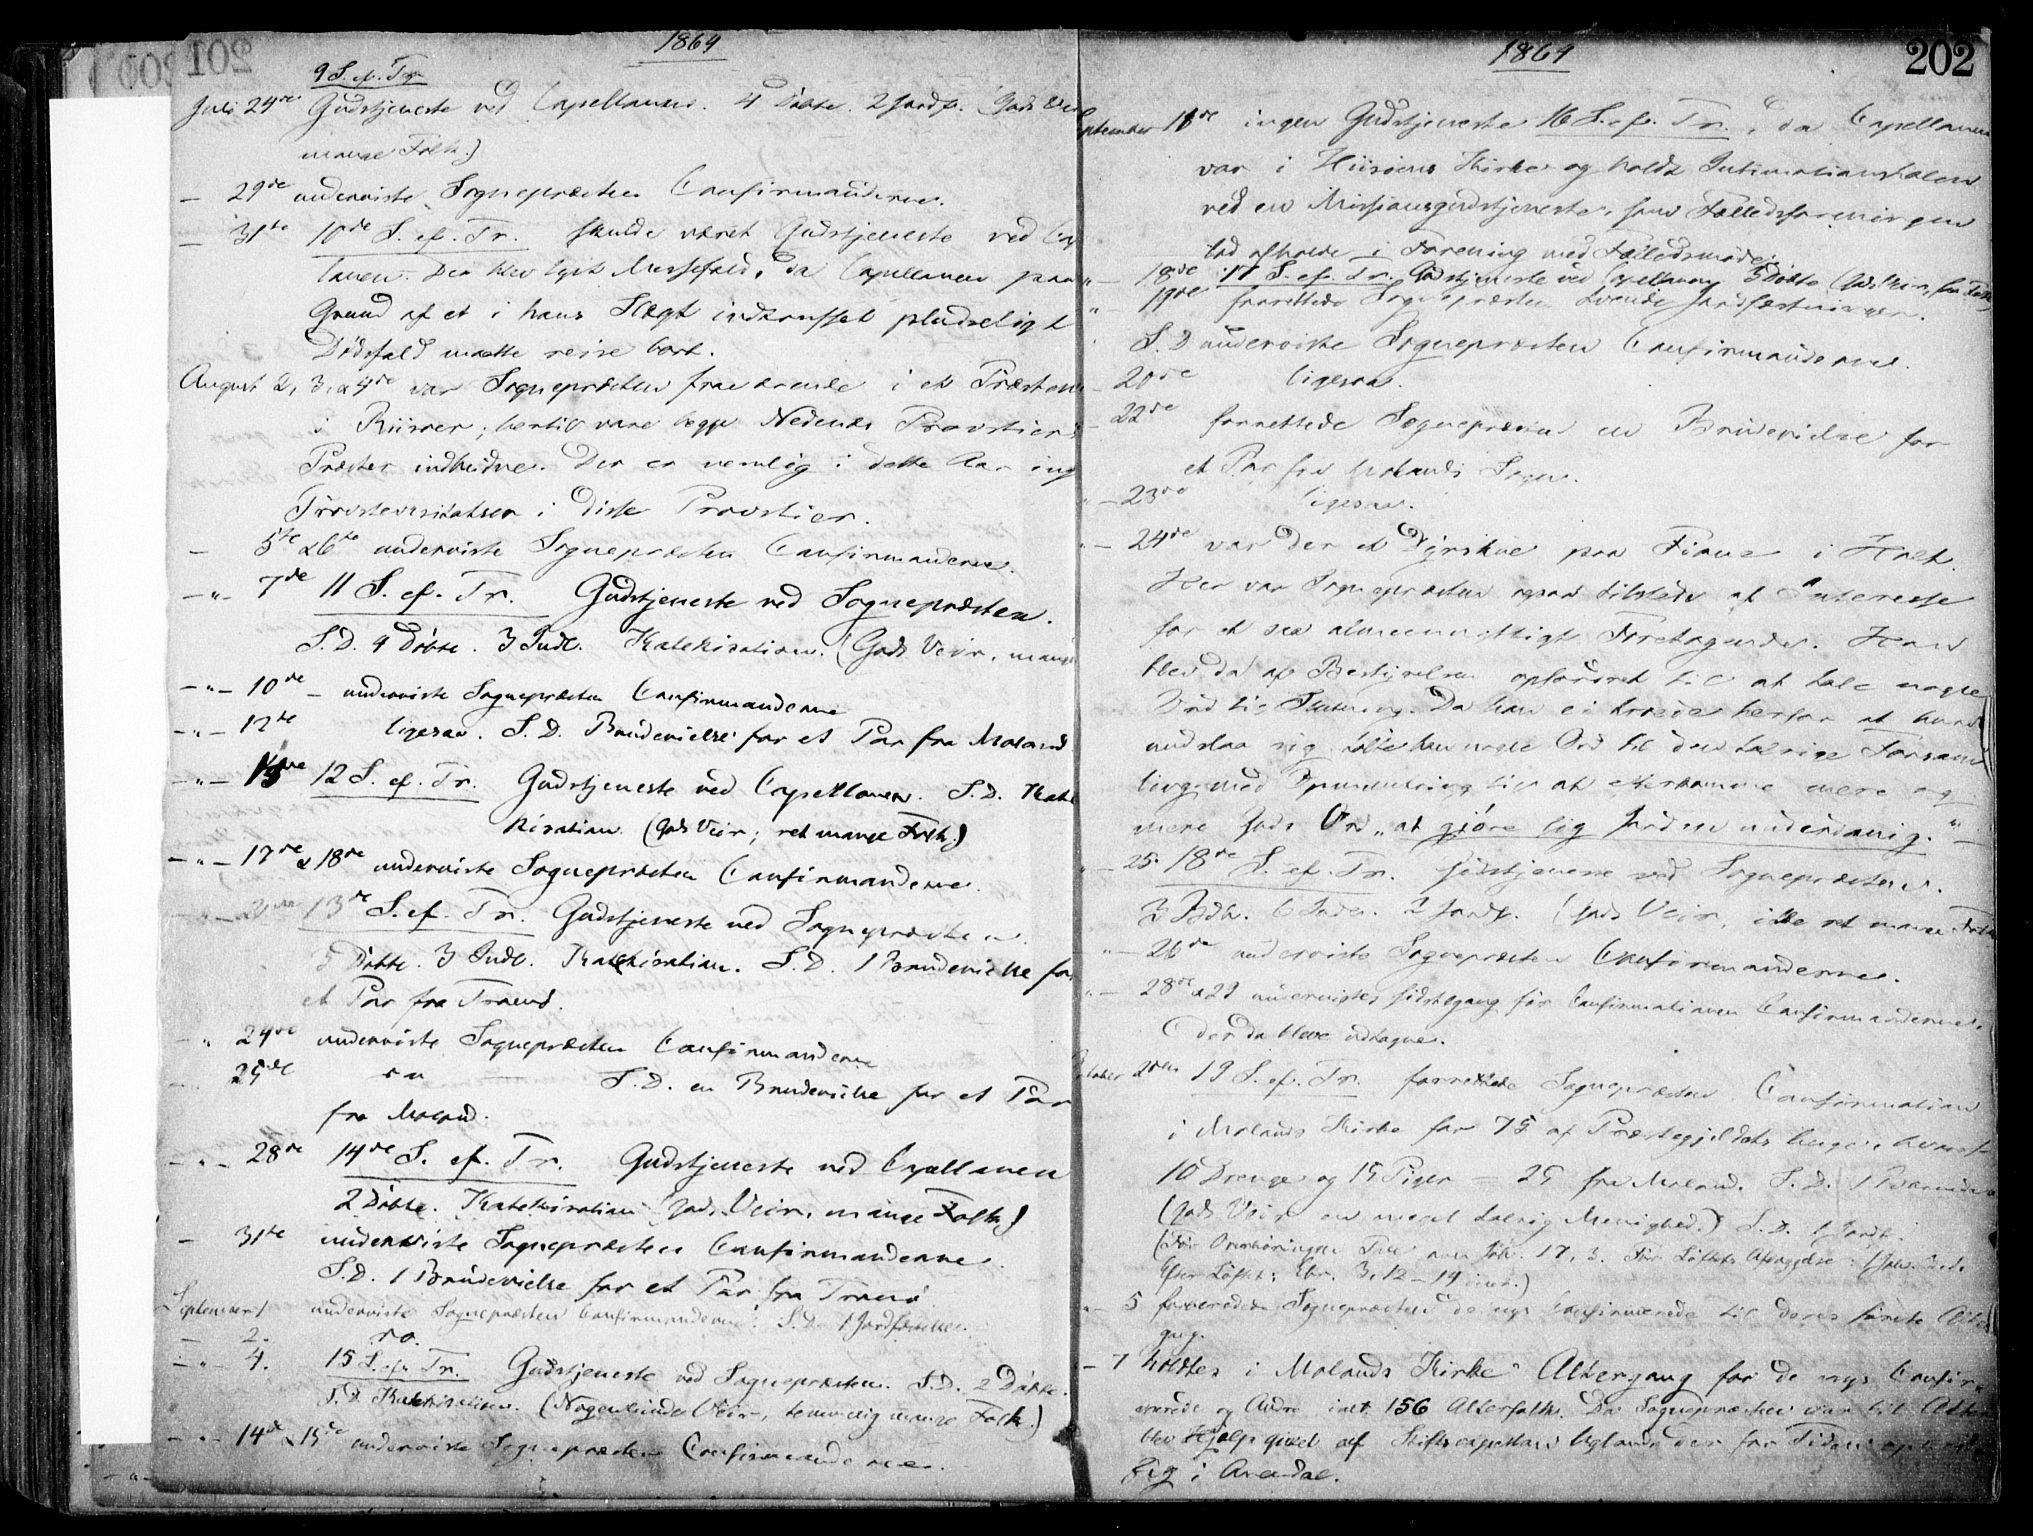 1864
9 S. ef. Tr.
Juli 24de Gudstjeneste ved Capellanen. 4 Døbte. 2 Jordf. (Godt Veir
mange Folk.)
— 29de underviste Sognepræsten Confirmanderne.
— 31te 10de S. ef. Tr. skulde været Gudstjeneste ved Cap
lanen. Der blev lyst Messefald, da Capellanen paa
Grund af et i hans Slægt indtruffet pludseligt
Dødsfald maatte reise bort.
August 2, 3, & 4de var Sognepræsten fraværende i et Præstemø
i Riisøer; hertil vare begge Nedenes Provstiers
Præster indbudne. Der er nemlig i dette Aar ing
Provstevisitatser i disse Provstier.
— 5te & 6te underviste Sognepræsten Confirmanderne.
— " — 7de 11 S. ef. Tr. Gudstjeneste ved Sognepræsten.
S. D. 9 Døbte. 3 Indl. Katekisation. (Godt Veir, mange
— " — 10de — underviste Sognepræsten Confirmanderne
— " — 12te ligesaa. S. D. Brudevielse for et Par fra Moland
— " — 12 S. ef. Tr. Gudstjeneste ved Capellanen. S. D. Kate
kisation. (Godt Veir; ret mange Folk.)
— " — 17de & 18de underviste Sognepræsten Confirmanderne.
— " — 21de 13de S. ef. Tr. Gudstjeneste ved Sognepræsten
5 Døbte. 3 Indl. Katekisation. S. D. 1 Brudevielse for
et Par fra Tromø.
— " 24de underviste Sognepræsten Confirmanderne
25de S. D. en Brudevielse for et Par
fra Moland.
— " — 28de 14de S. ef. Tr. Gudstjeneste ved Capellanen
2 Døbte. Katekisation (Godt Veir, mange Folk)
— 31te underviste Sognepræsten Confirmanderne.
S. D. 1 Brudevielse for et Par fra Tromø
September 1 underviste Sognepræsten Confirmanderne. S. D. 1 Jordfæstelse.
— 2. do.
— " — 4. 15 S. ef. Tr. Gudstjeneste ved Sognepræsten. S. D. 2 Døbte.
S. D. Katekisation. (Nogenlunde Veir, temmelig mange Folk.)
— " — 14de & 15de underviste Sognepræsten Confirmanderne.
1864
202
September 11de ingen Gudstjeneste 16 S. ef. Tr., da Capellanen
var i Hiisøens Kirke og holdt Intimationstalen
ved en Missionsgudstjeneste, som Fælledsforeningen
lod afholde i Forening med Fælledsmøde.
" — 18de 17 S. ef. Tr. Gudstjeneste ved Capellanen 5 Døbte (Godt Veir, Folk)
" 19de forrettede Sognepræsten Jordfæstelser.
S. D. underviste Sognepræsten Confirmanderne.
— 20de ligesaa.
— 22de forrettede Sognepræsten en Brudevielse for
et Par fra Molands Sogn.
" — 23de ligesaa.
" — 24de var der et Dyrskue paa Fiane i Holt.
Her var Sognepræsten ogsaa tilstede af Interesse
for et saa almeennyttigt Foretagende. Han
blev da af Bestyrelsen opfordret til at tale nogle
Ord til Slutning. Da han ei troede herfor at kunde
undslaa sig talte han nogle Ord til den talrige Forsam
ling med Opmuntring til at efterkomme mere og
mere Guds Ord „at gjøre sig Jorden underdanig." —
" — 25. 18de S. ef. Tr. Gudstjeneste ved Sognepræsten.
6 Indl. 2 Jordf. (Godt Veir, ikke ret mange Folk
" — 26de underviste Sognepræsten Confirmanderne.
" — 28de & 29 undervistes sidstegang før Confirmationen Confirmanderne,
der da bleve udtagne.
October 2den 19 S. ef. Tr. forrettede Sognepræsten Confirmation
i Molands Kirke for 75 af Præstegjeldets Unge,
10 Drenge og 15 Piger = 25 fra Moland. S. D. 1 Brudev
(Godt Veir en meget talrig Menighed.) S. D. 1 Jordf.
(Før Overhøringen Tale over Joh. 17, 3. Før Løftets Aflæggelse
Efter Løftet: Ebr. 3, 12 – 14 incl.)
" — 5 forberedede Sognepræsten de nys Confirmerede til deres første Alter
gang.
" — 7 holdtes i Molands Kirke Altergang for de nys Confir
merede og Andre ialt 156 Altersfolk. Da Sognepræsten var til Alters
blev Hjælp givet af Stiftscapellan Ugland der for Tiden opholdt
sig i Arendal.